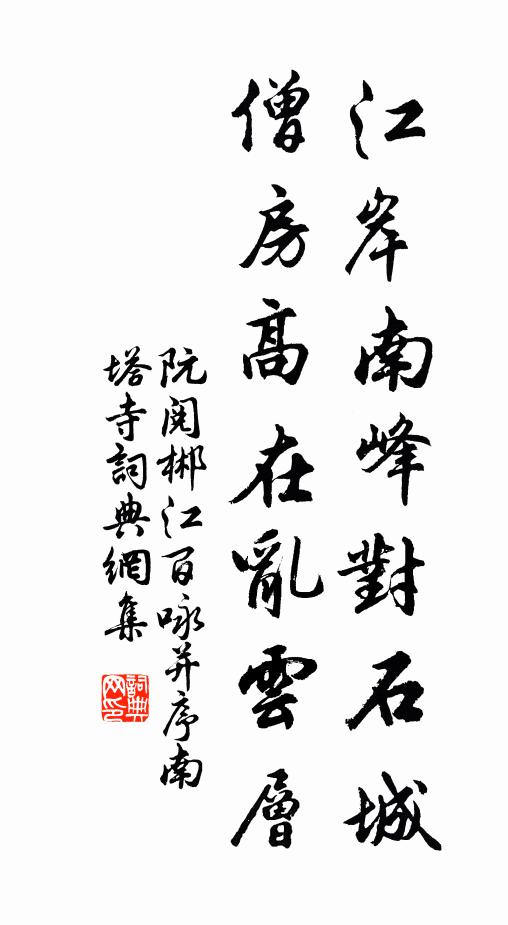 江岸南峰對石城
僧房高在亂雲層
阮閱郴江百咏并序南
塔寺詞典網集
詞典網印